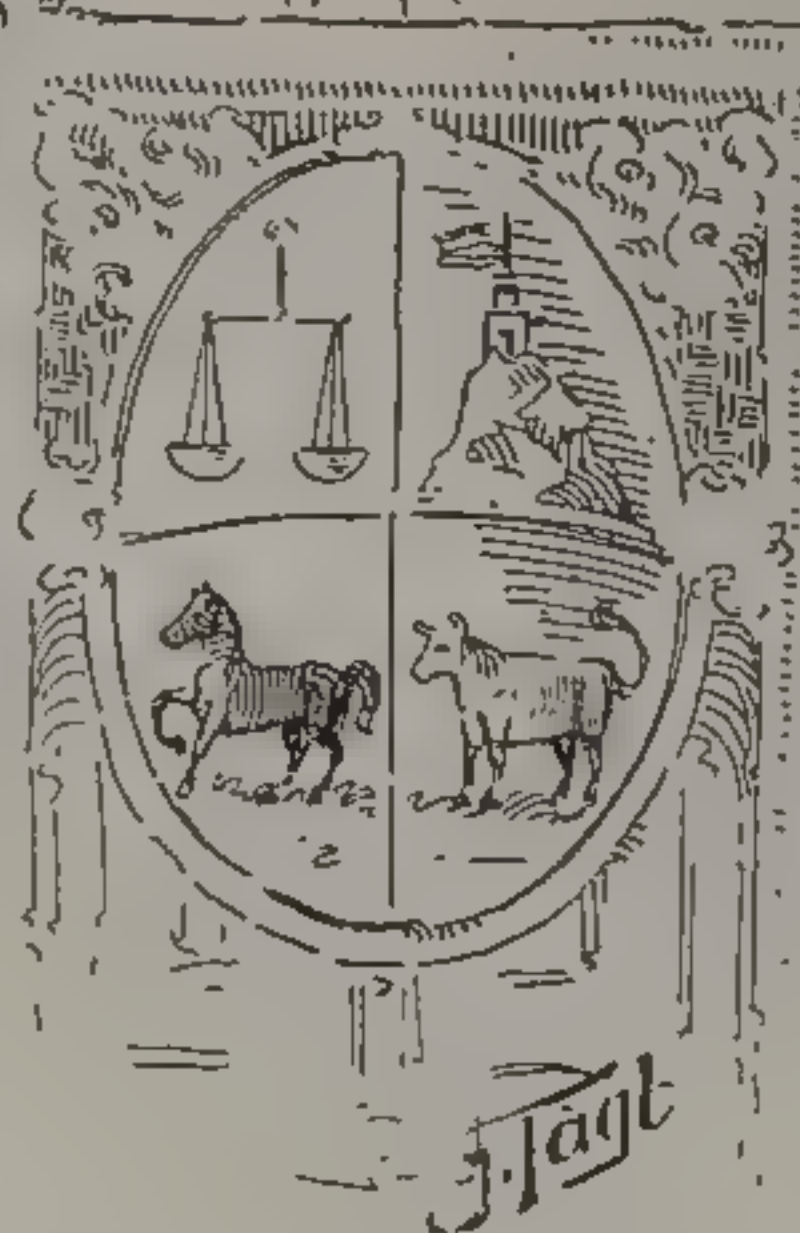 J.Tàgt